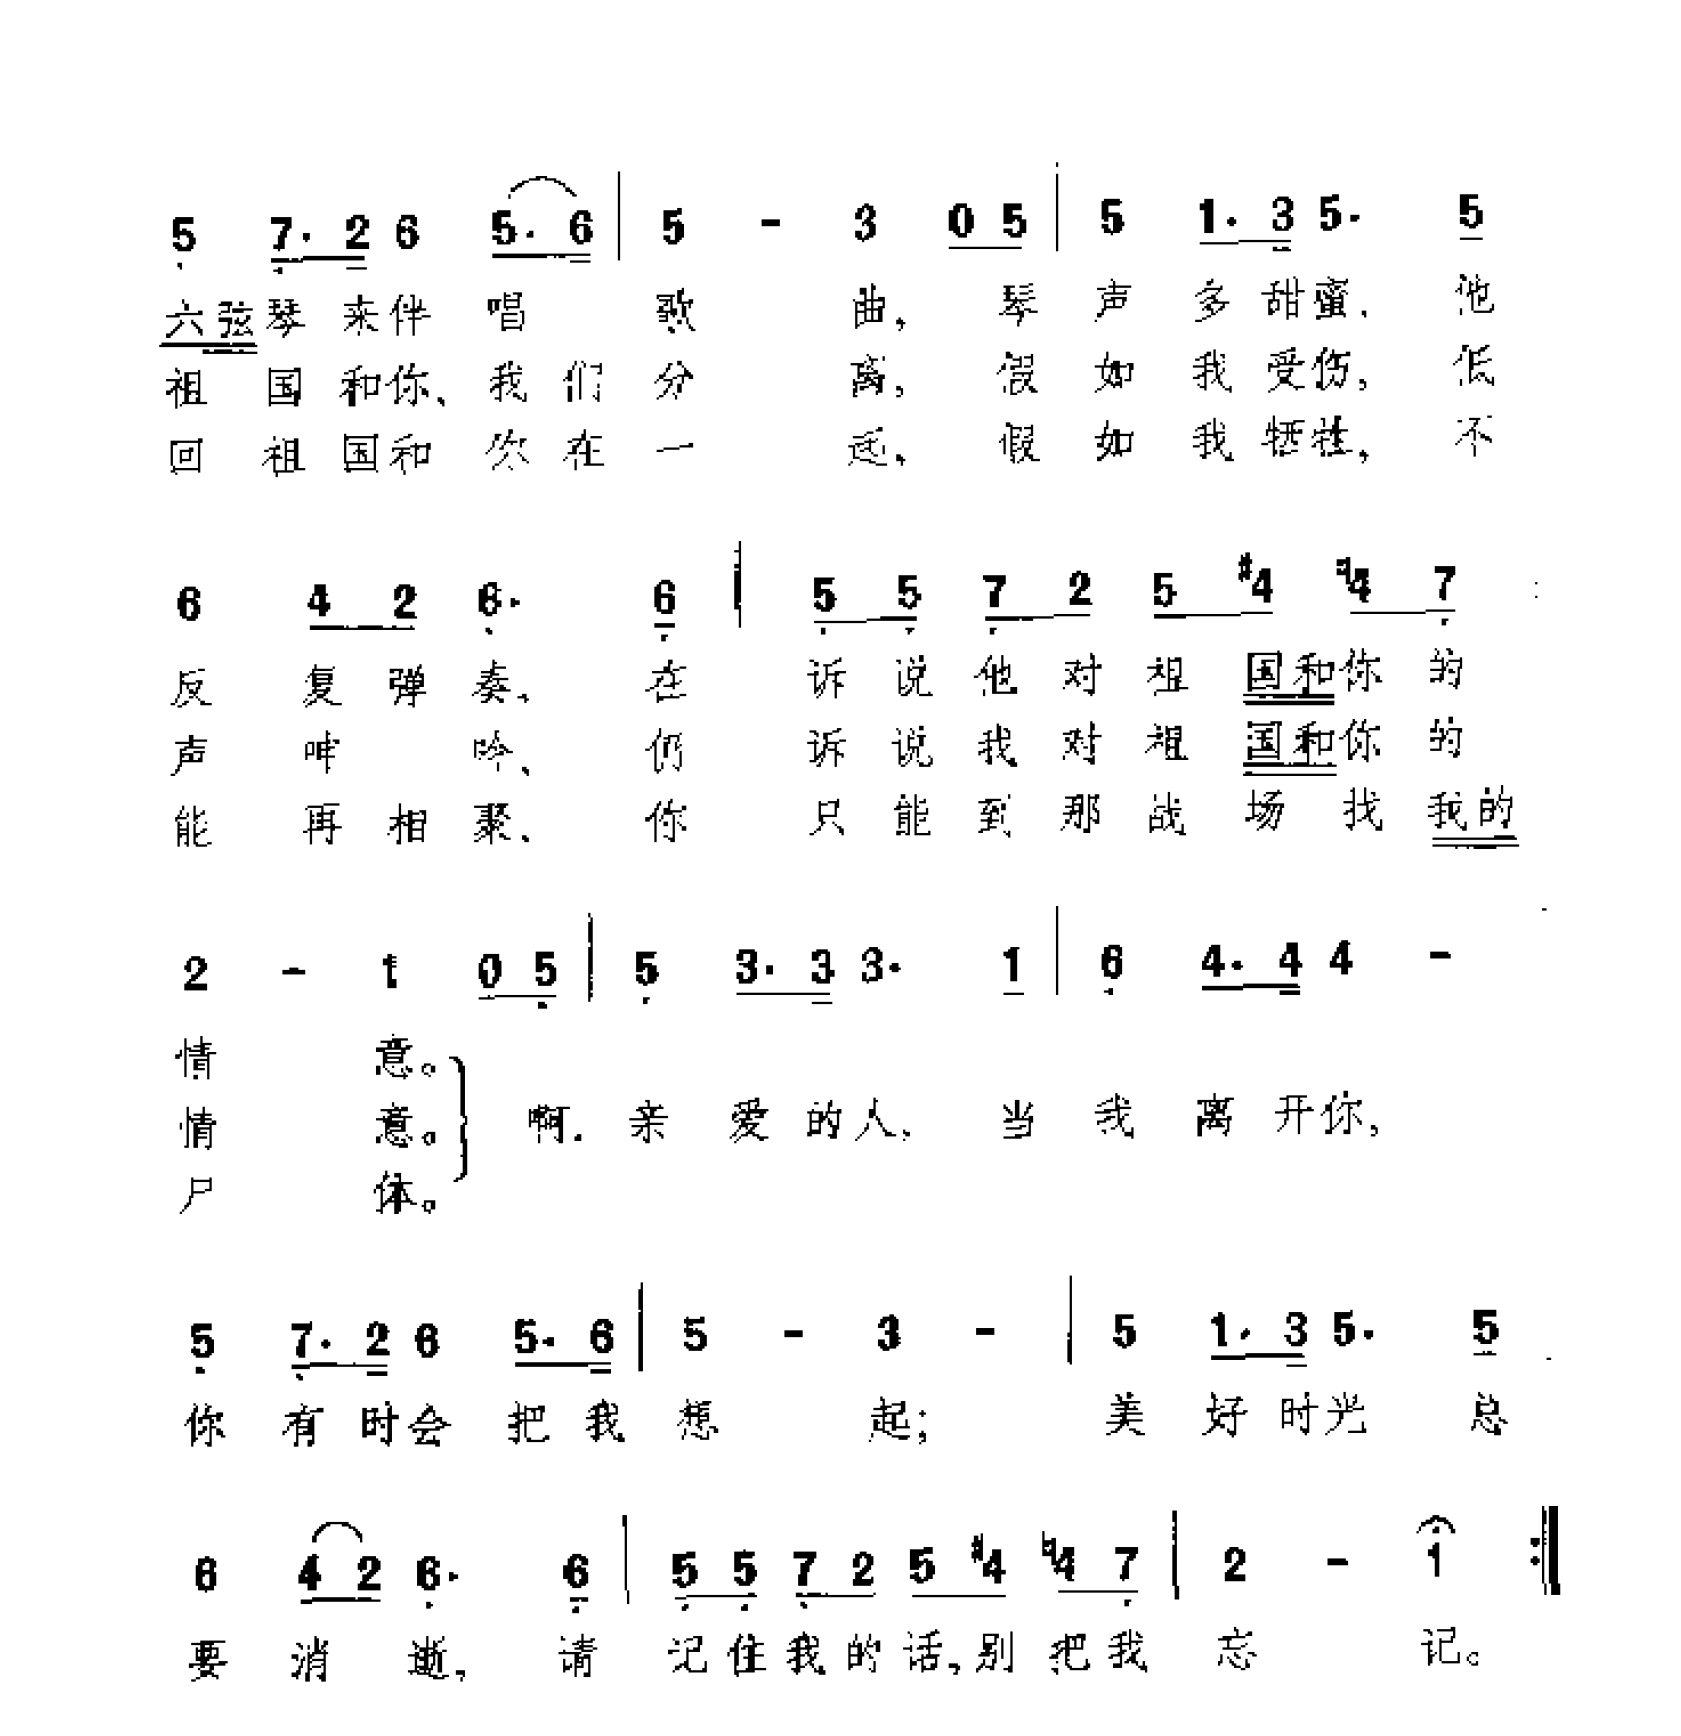 5 7. 2 6 5. 6 | 5 - 3 0 5 | 5 1. 3 5. 5
六弦琴来伴唱 歌 曲, 琴声多甜蜜, 他
祖国和你、我们分 离, 假如我受伤, 低
回祖国和你在一 起、 假如我牺牲, 不
6 4 2 6. 6 | 5 5 7 2 5 #4 ♮4 7
反复弹奏、在诉说他对祖国和你的
声呻 吟、仍诉说我对祖国和你的
能再相聚、你只能到那战场找我的
2 - 1 0 5 | 5 3. 3 3. 1 | 6 4. 4 4 -
情 意。
情 意。 啊. 亲爱的人, 当我离开你,
尸 体。
5 7. 2 6 5. 6 | 5 - 3 - | 5 1. 3 5. 5
你有时会把我想 起; 美好时光总
6 4 2 6. 6 | 5 5 7 2 5 #4 ♮4 7 | 2 - 1 :‖
要消 逝, 请记住我的话, 别把我忘 记。